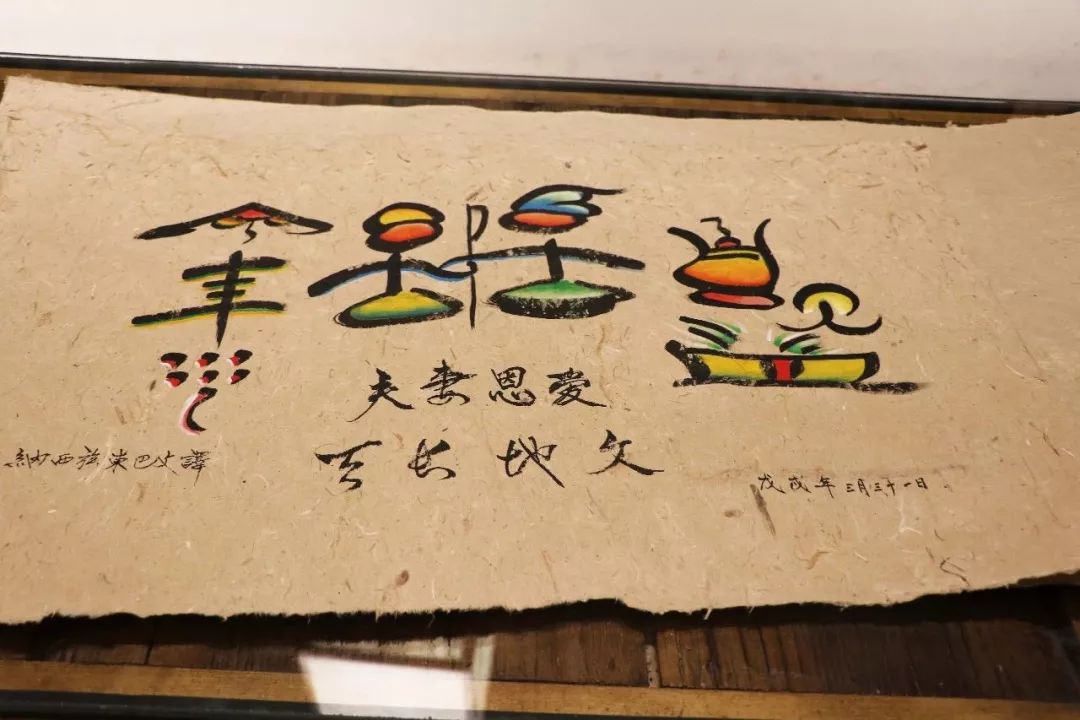 夫妻恩爱
天长地久
納西族東巴文譯
戊戌年三月三十一日